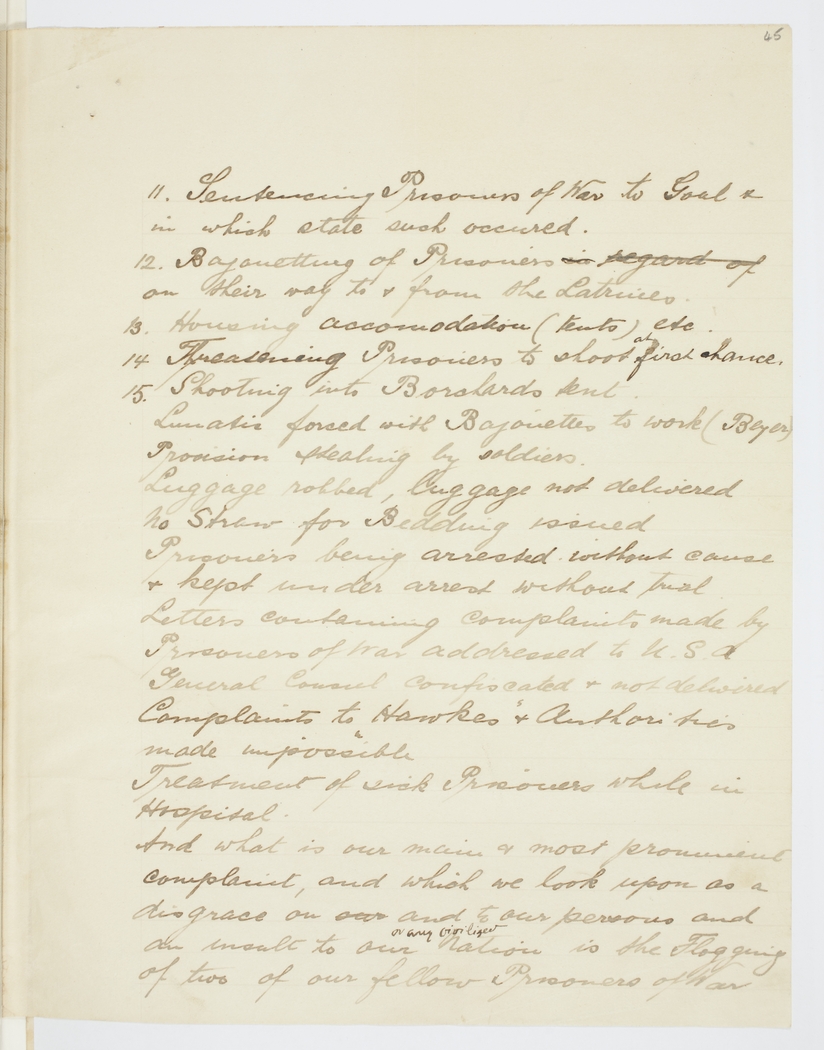 45
11. Sentencing Prisoners of War to Goal &
in which state such occured.
12. Bajonetting of Prisoners in regard of
on their way to & from the Latrines.
13. Housing accomodation (tents) etc.
14 Threatening Prisoners to shoot at first chance.
15. Shooting into Borchards tent.
Lunatic forsed with Bajonettes to work (Beyer)
Provision stealing by soldiers.
Luggage robbed, luggage not delivered
No Straw for Bedding issued
Prisoners being arrested without cause
& kept under arrest without trial
Letters containing complaints made by
Prisoners of War addressed to U.S.A
General Consul confiscated & not delivered
Complaints to "Hawkes" & Authorities
made impossible
Treatment of sick Prisoners while in
Hospital.
And what is our main & most prominent
complaint, and which we look upon as a
disgrace on our and to our persons and
an insult to our or any civilized Nation is the Flogging
of two of our fellow Prisoners of War